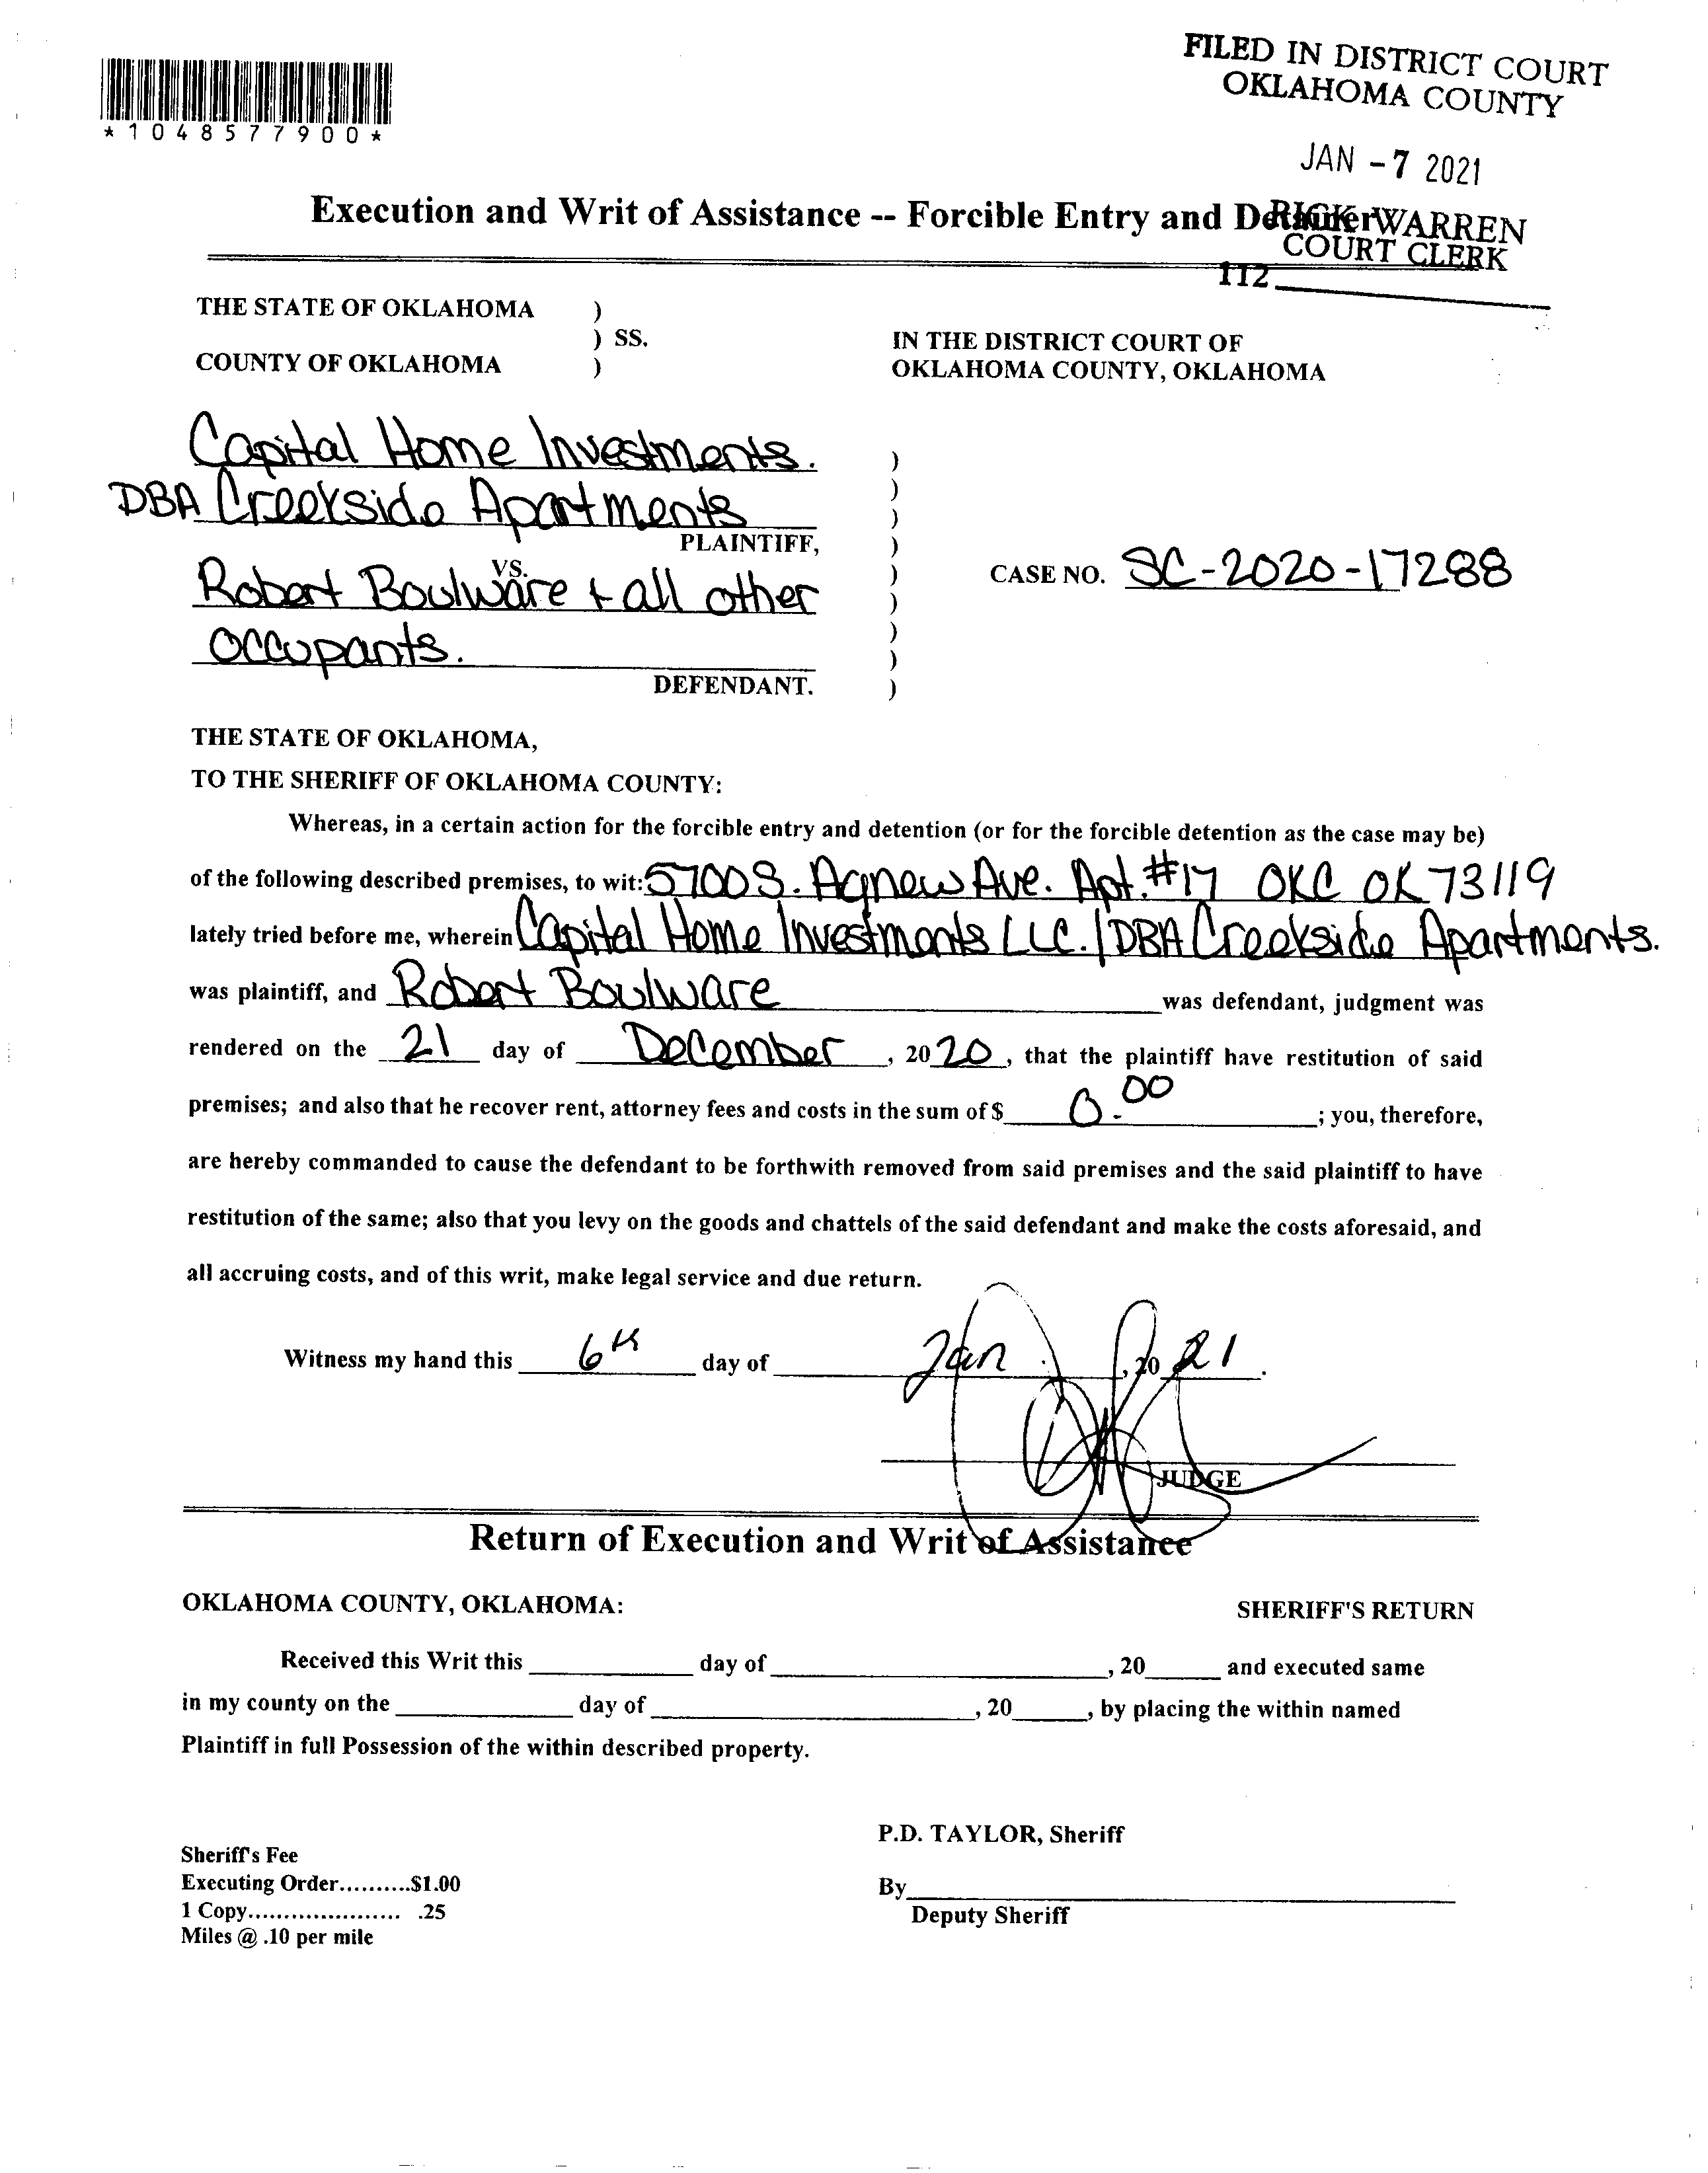 FILED IN DISTRICT COURT
OKLAHOMA COUNTY
*1048577900*
JAN -7 2021
Execution and Writ of Assistance -- Forcible Entry and Detainer
RICK WARREN
COURT CLERK
112
THE STATE OF OKLAHOMA )
) SS.
COUNTY OF OKLAHOMA )
IN THE DISTRICT COURT OF
OKLAHOMA COUNTY, OKLAHOMA
Capital Home Investments.
DBA Creekside Apartments
PLAINTIFF,
VS.
Robert Boulware + all other
occupants.
DEFENDANT.
)
)
)
)
)
)
)
)
)
CASE NO. SC-2020-17288
THE STATE OF OKLAHOMA,
TO THE SHERIFF OF OKLAHOMA COUNTY:
Whereas, in a certain action for the forcible entry and detention (or for the forcible detention as the case may be)
of the following described premises, to wit: 5700 S. Agnew Ave. Apt. #17 OKC OK 73119
lately tried before me, wherein Capital Home Investments LLC. / DBA Creekside Apartments.
was plaintiff, and Robert Boulware was defendant, judgment was
rendered on the 21 day of December, 2020, that the plaintiff have restitution of said
premises; and also that he recover rent, attorney fees and costs in the sum of $ 0.00; you, therefore,
are hereby commanded to cause the defendant to be forthwith removed from said premises and the said plaintiff to have
restitution of the same; also that you levy on the goods and chattels of the said defendant and make the costs aforesaid, and
all accruing costs, and of this writ, make legal service and due return.
Witness my hand this 6th day of Jan., 2021.
JUDGE
Return of Execution and Writ of Assistance
OKLAHOMA COUNTY, OKLAHOMA: SHERIFF'S RETURN
Received this Writ this ____ day of ____, 20____ and executed same
in my county on the ____ day of ____, 20____, by placing the within named
Plaintiff in full Possession of the within described property.
P.D. TAYLOR, Sheriff
Sheriff's Fee
Executing Order..........$1.00
1 Copy..................... .25
Miles @ .10 per mile
By____
Deputy Sheriff